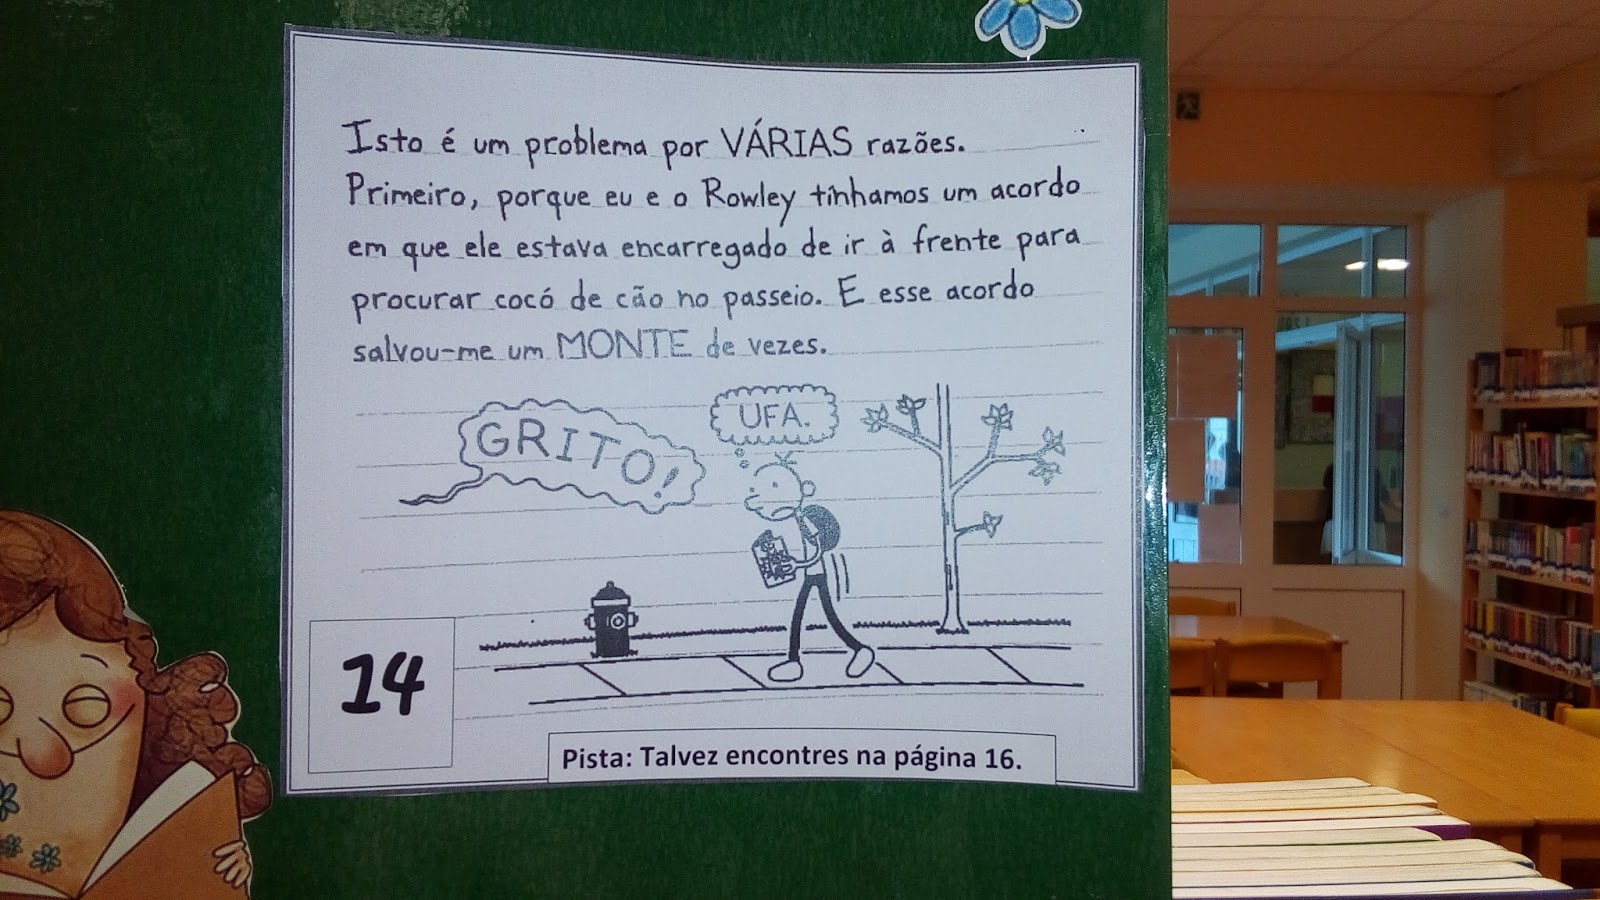 Isto é um problema por VÁRIAS razões.
Primeiro, porque eu e o Rowley tínhamos um acordo
em que ele estava encarregado de ir à frente para
procurar cocó de cão no passeio. E esse acordo
salvou-me um MONTE de vezes.
GRITO!
UFA.
14
Pista: Talvez encontres na página 16.